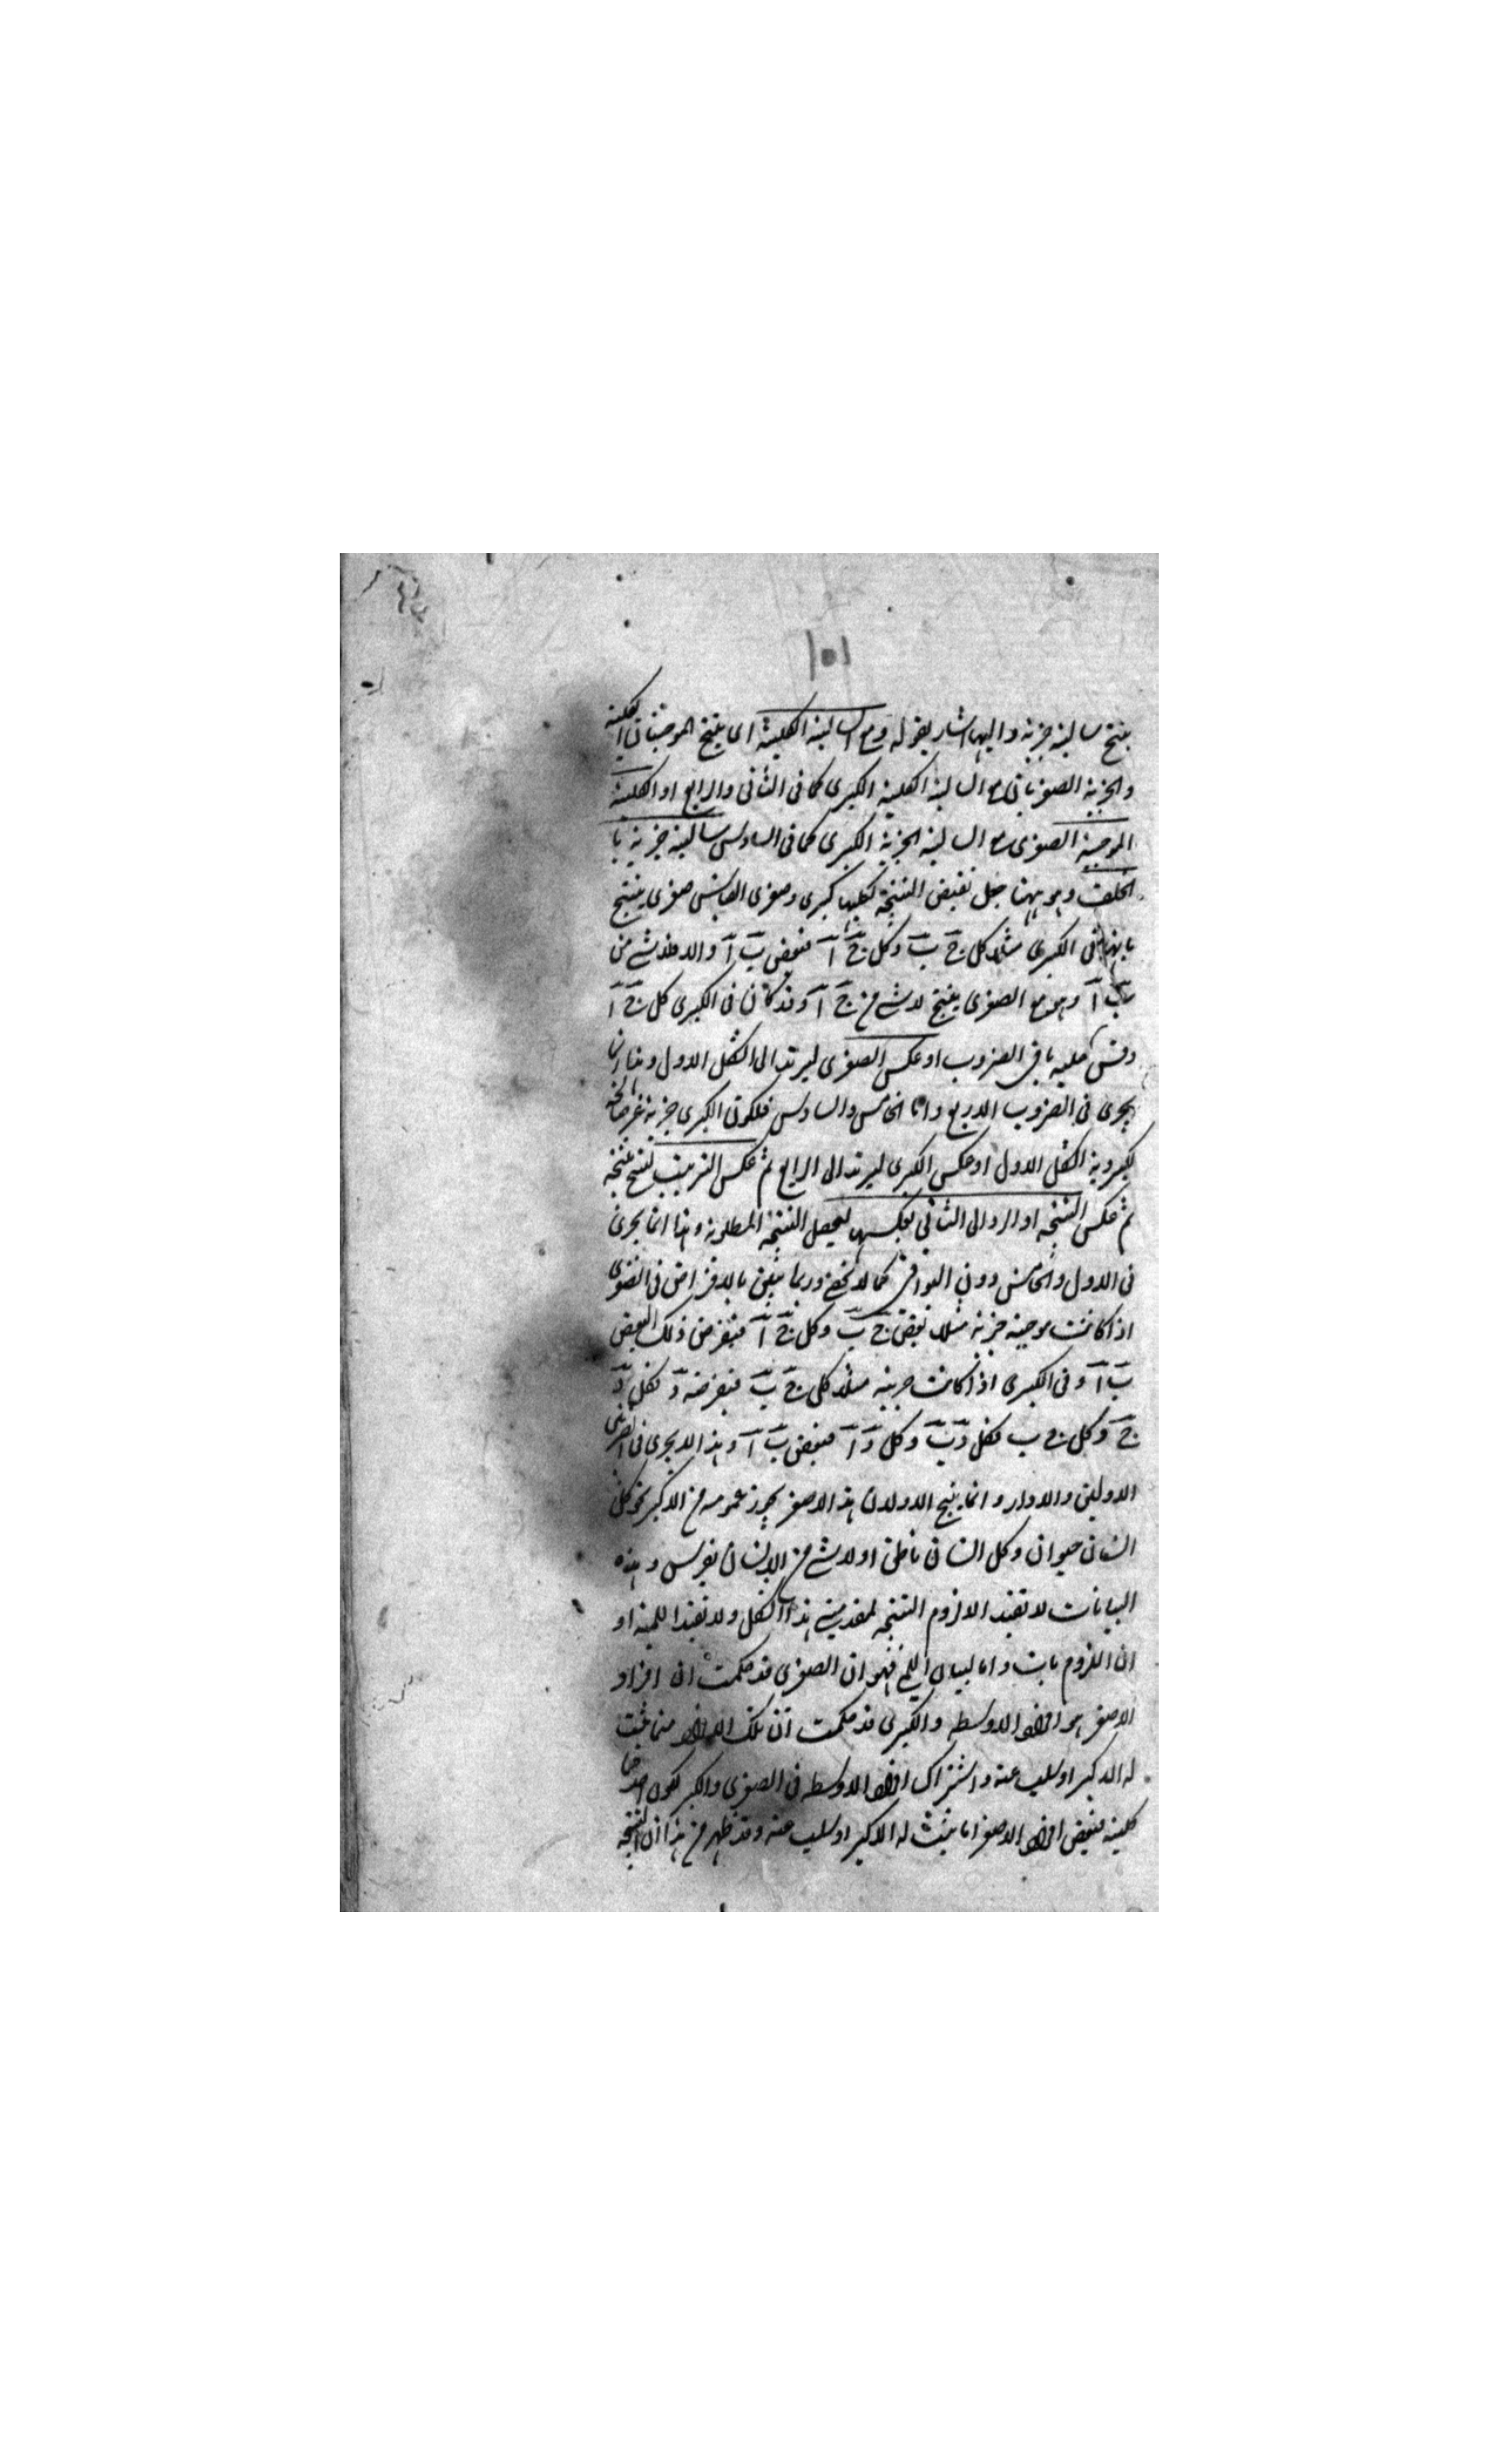 ١٠١
ينتج سالبة جزئية واليها اشار بقوله ومع السالبة الكلية اى ينتج الموجبتان الكلية
والجزئية الصغريان مع السالبة الكلية الكبرى كما فى الثانى والرابع او الكلية
الموجبة الصغرى مع السالبة الجزئية الكبرى كما فى السادس سالبة جزئية با
الخلف وهو ههنا جعل نقيض النتيجة لكليتها كبرى وصغرى القياس صغرى ينتج
ما ينافى الكبرى مثلا كل ج ب وكل ج آ فبعض ب آ والا فلا شے من
ب آ وهو مع الصغرى ينتج لا شے من ج آ وقد كان فى الكبرى كل ج آ
وقس عليه باقى الضروب او عكس الصغرى ليرتد الى الشكل الاول وهذا
يجرى فى الضروب الاربع واما الخامس والسادس فلكون الكبرى جزئية غير صالحة
لكبروية الشكل الاول او عكس الكبرى ليرتد الى الرابع ثم عكس الترتيب لينتج نتيجة
ثم عكس النتيجة او الرد الى الثانى بعكسهما ليحصل النتيجة المطلوبة وهذا انما يجرى
فى الاول والخامس دون البواقى كما لا يخفى وربما يبين بالافتراض فى الصغرى
اذا كانت موجبة جزئية مثلا بعض ج ب وكل ج آ فنفرض ذلك البعض
ب آ و فى الكبرى اذا كانت جزئية مثلا كل ج ب فنفرضه د فكل د
ج وكل ج ب فكل د ب وكل د آ فبعض ب آ وهذا لا يجرى فى الضربين
الاولين والا دار وانما ينتج الاولان هذا الاصغر يجوز عمومه من الاكبر نحو كل
انسان حيوان وكل انسان ناطق او لا شے من الانسان بفرس وهذه
البيانات لا تفيد الا لزوم النتيجة لمقدمتى هذا الشكل ولا تفيد اللمية او
ان اللزوم بات واما لبيان اللمى فهو ان الصغرى قد حكمت ان افراد
الاصغر هو افراد الاوسط والكبرى قد حكمت ان تلك الافراد مما يثبت
له الاكبر او سلب عنه واشتراك افراد الاوسط فى الصغرى والكبرى لكون احدهما
كلية فبعض افراد الاصغر اما يثبت له الاكبر او سلب عنه وقد ظهر من هذا ان النتيجة